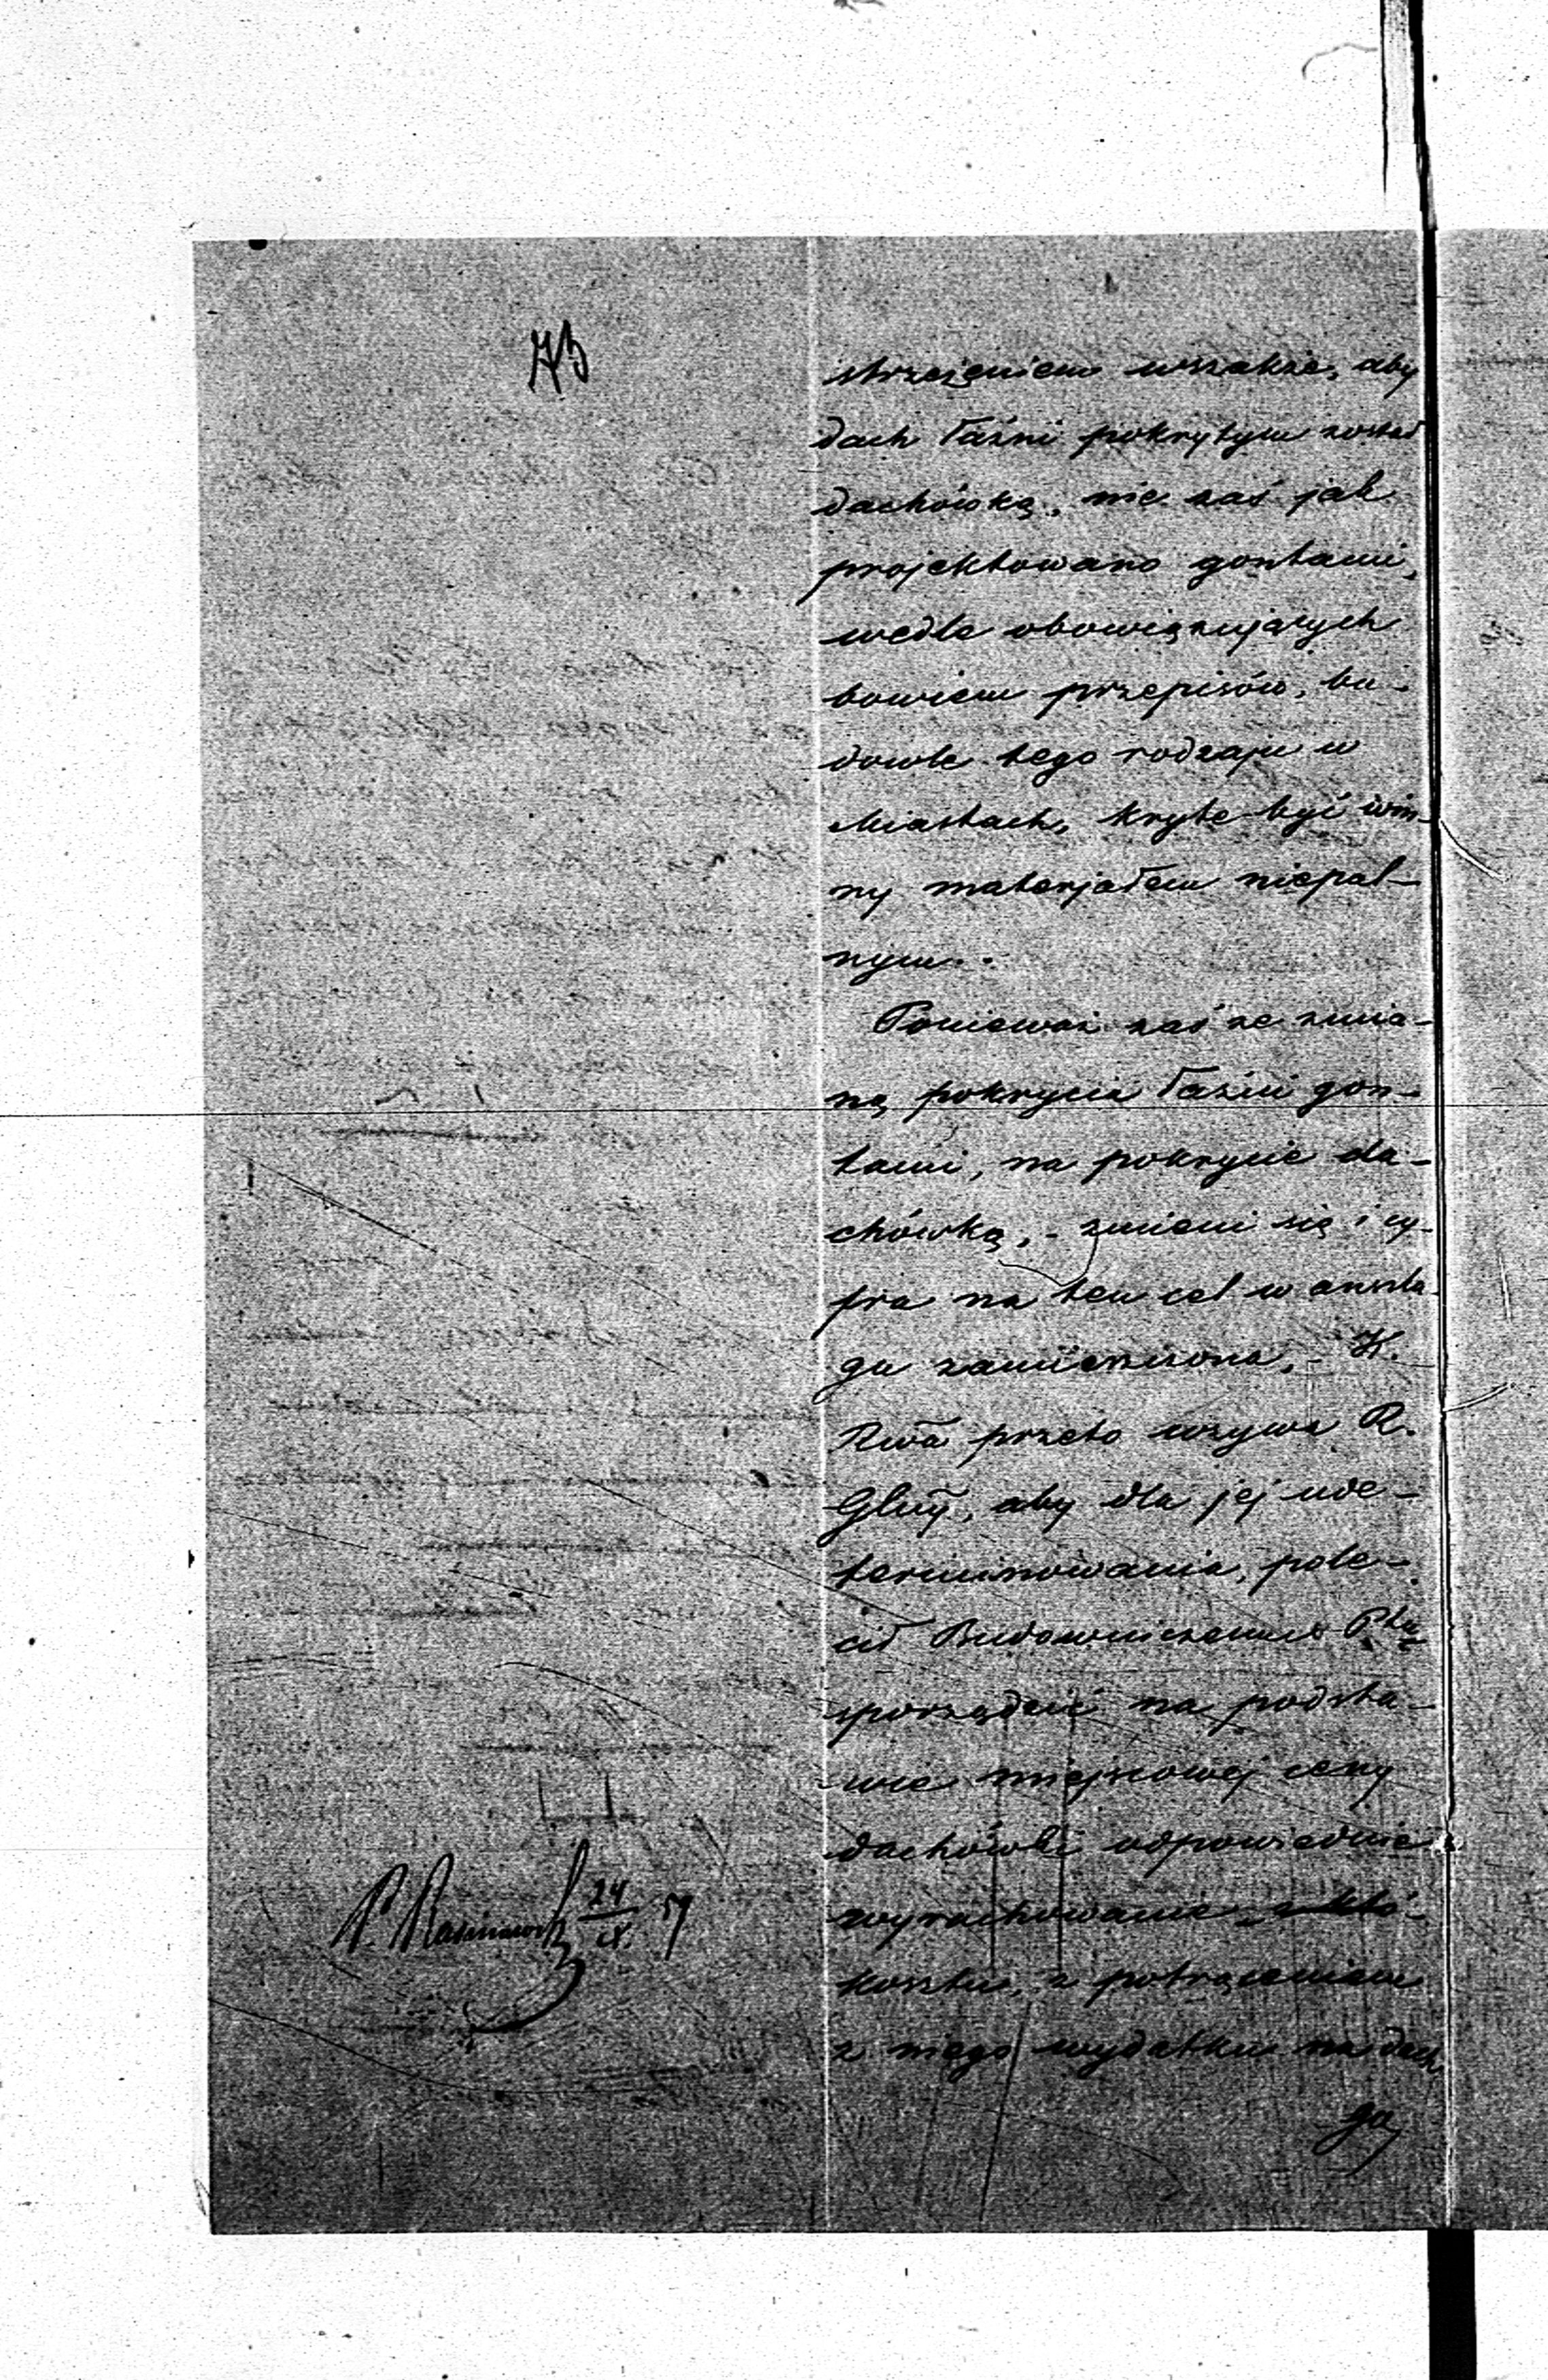 73
strzeżeniem wszakże, aby
dach łaźni pokrytym został
dachówką, nie zaś jak
projektowano gontami,
wedle obowiązujących
bowiem przepisów, bu-
dowle tego rodzaju w
Miastach, kryte być win-
ny materjałem niepal-
nym.
Ponieważ zaś ze zmia-
ną pokrycia łaźni gon-
tami, na pokrycie da-
chówką, - zmieni się i cy-
fra na ten cel w anszla-
gu zamieszczona, - K.
Rwa przeto wzywa R.
Glny, aby dla jej ude-
terminowania, pole-
cił Budowniczemu Ptu
sporządzić na podsta-
wie miejscowej ceny
dachówki odpowiednie
wyrachowanie
kosztu, z potrąceniem
z niego wydatku na dach
go
24/IX 59